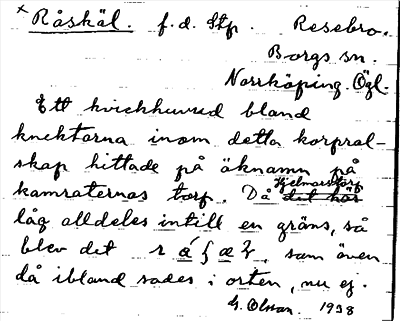 × Råskäl. f.d. Stp. Resebro.
Borgs sn.
Norrköping. Ögl.
Ett kvickhuvud bland
knektarna inom detta korpral-
skap hittade på öknamn på
kamraternas torp. Då Hjelmarstorp det här
låg alldeles intill en gräns, så
blev det som även
då ibland sades i orten, nu ej.
G. Olsson. 1938